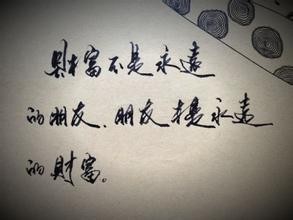 財富不是永遠
的朋友、朋友才是永遠
的財富。